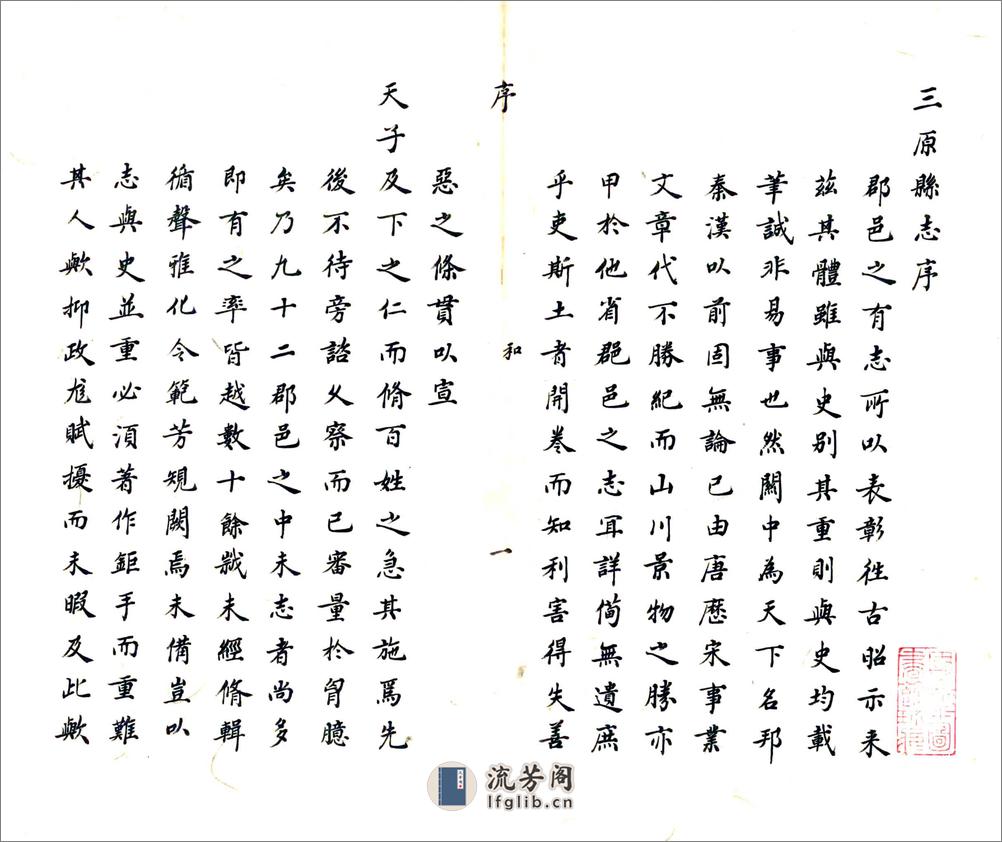 三原縣志序
郡邑之有志所以表彰徃古昭示来
茲其體雖與史别其重則與史均載
筆誠非易事也然關中為天下名邦
秦漢以前固無論已由唐歷宋事業
文章代不勝紀而山川景物之勝亦
甲於他省郡邑之志冝詳僃無遺庶
乎吏斯土者開卷而知利害得失善
序
和
一
惡之條貫以宣
天子及下之仁而脩百姓之急其施爲先
後不待旁諮久察而已審量於胷臆
矣乃九十二郡邑之中未志者尚多
即有之率皆越數十餘載未經脩輯
循聲雅化令範芳規闕焉未備豈以
志與史並重必湏著作鉅手而重難
其人歟抑政尨賦擾而未暇及此歟
流芳阁
lfglib.cn